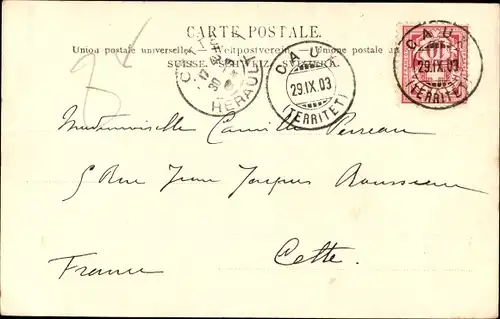 CARTE POSTALE.
Union postale universelle. Weltpostverein. Unione postale
SUISSE. SCHWEIZ. SVIZZERA.
CETTE
HERAULT
CAUX
29.IX.03
(TERRITET)
CAUX
29.IX.03
(TERRITET)
Mademoiselle Camille Perreau
5 Rue Jean Jacques Rousseau
Cette.
France